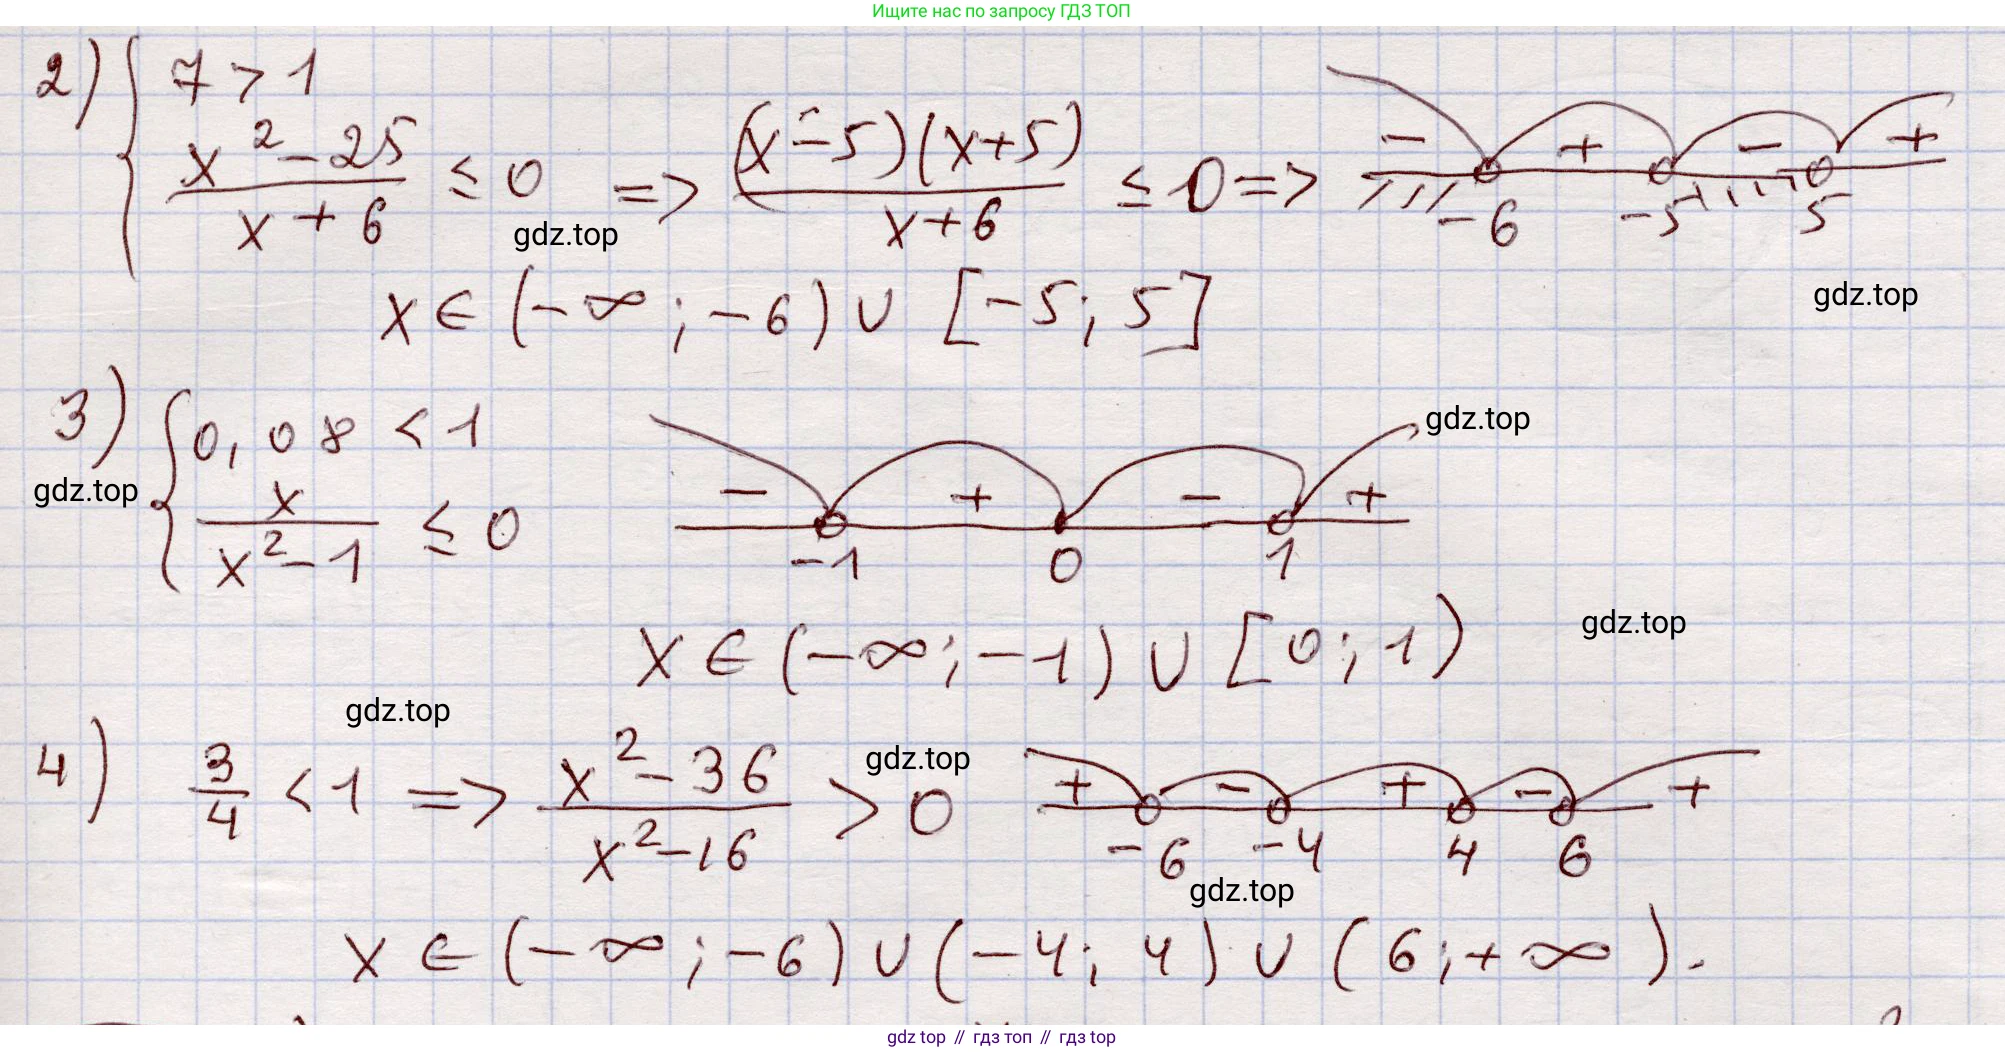 Ищите нас по запросу ГДЗ ТОП
2) { 7 > 1
(x² - 25)/(x + 6) ≤ 0 => ((x - 5)(x + 5))/(x + 6) ≤ 0 => - + - +
-6 -5 5
gdz.top
gdz.top
x ∈ (-∞; -6) ∪ [-5; 5]
3) { 0,08 < 1
gdz.top
gdz.top
x/(x² - 1) ≤ 0 - + - +
-1 0 1
x ∈ (-∞; -1) ∪ [0; 1)
gdz.top
gdz.top
4) 3/4 < 1 => (x² - 36)/(x² - 16) > 0 + - + - +
gdz.top
-6 -4 4 6
gdz.top
x ∈ (-∞; -6) ∪ (-4; 4) ∪ (6; +∞).
gdz top // гдз топ // gdz top